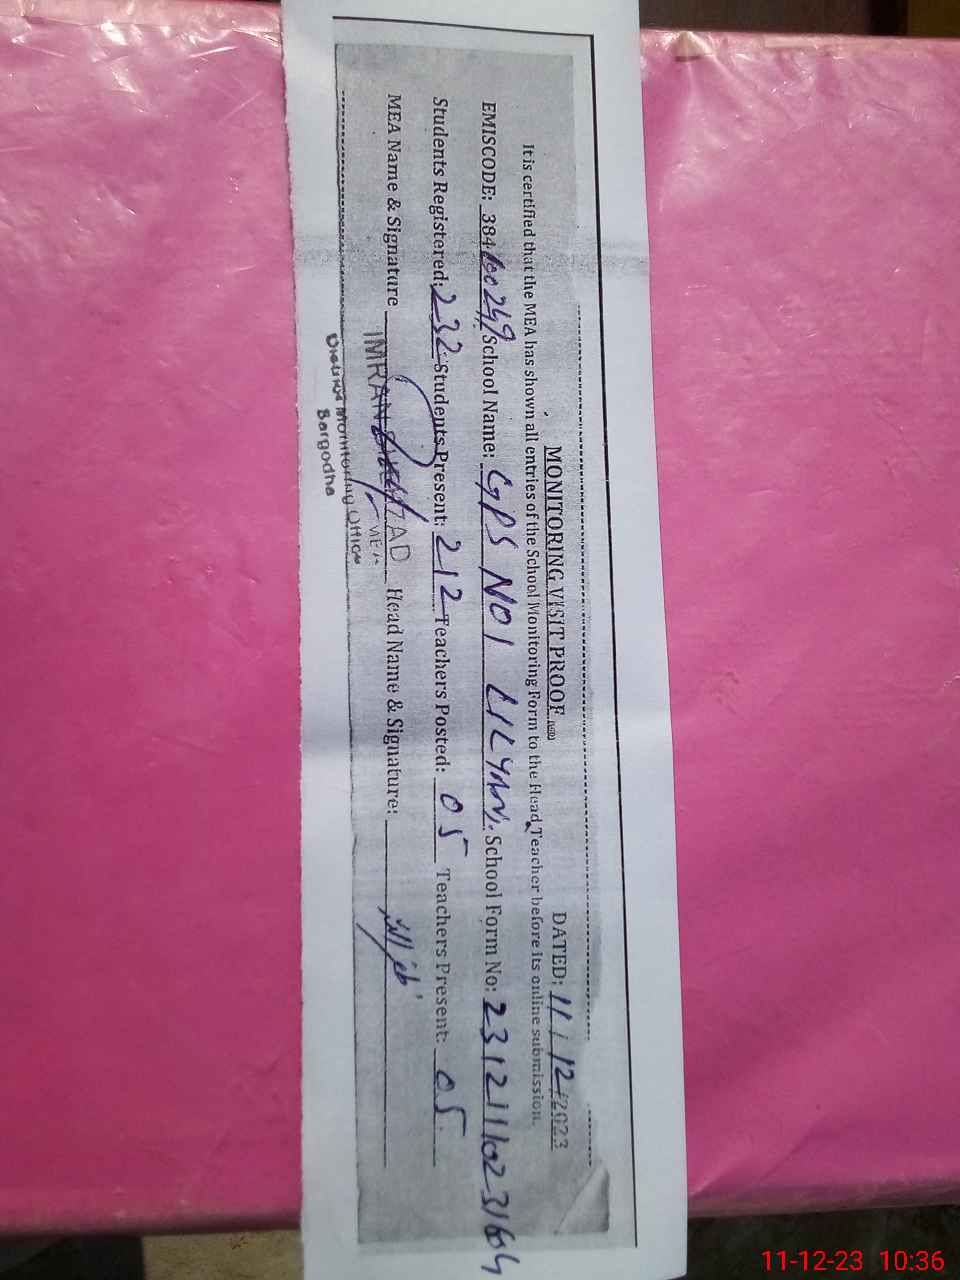 MONITORING VISIT PROOF DATED: 11/12/2023
It is certified that the MEA has shown all entries of the School Monitoring Form to the Head Teacher before its online submission.
EMISCODE: 384 School Name: GPS NO1 LILYANI. School Form No:
Students Registered: 232 Students Present: 212 Teachers Posted: 05 Teachers Present: 05
MEA Name & Signature IMRAN MEA Head Name & Signature:
Monitoring Office
Sargodha
11-12-23 10:36